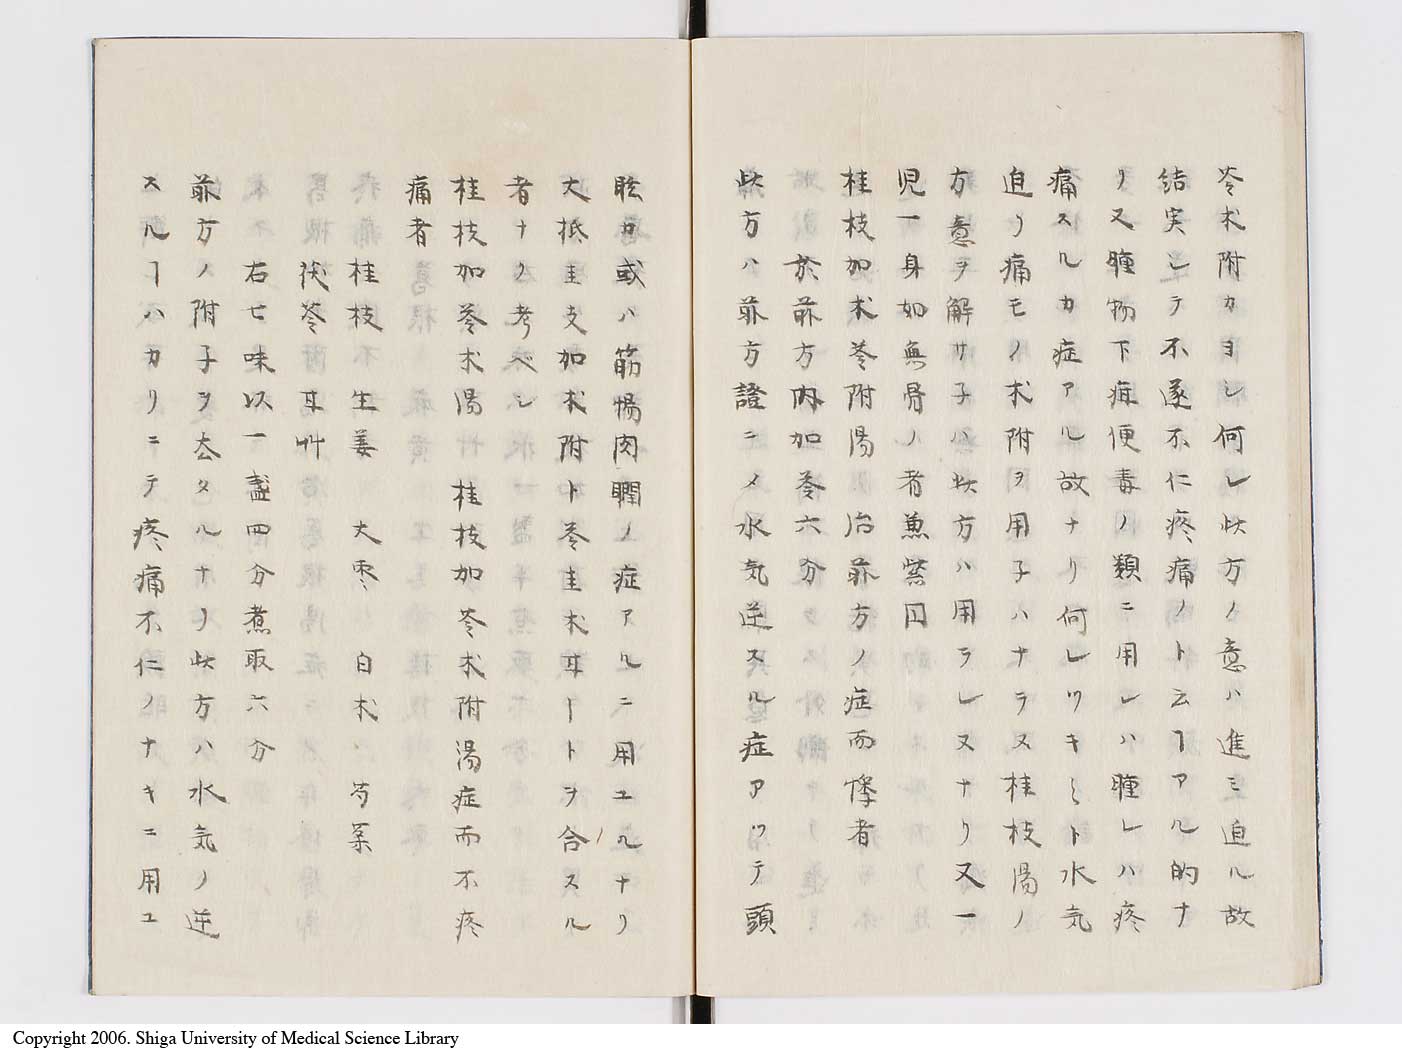 苓朮附カヨシ何レ此方ノ意ハ進ミ迫ル故
結実シテ不遂不仁疼痛ノト云ヿアル的ナ
ノ又腫物下疳便毒ノ類ニ用レハ腫レハ疼
痛スルカ症アル故ナリ何レツキミト水気
迫リ痛モノ朮附ヲ用子ハナラス桂枝湯ノ
方意ヲ解サ子ハ此方ハ用ラレヌナリ又一
児一身如無骨ノ者兼紫円
桂枝加朮苓附湯治前方ノ症而悸者
於前方内加苓六分
此方ハ前方證ニメ水気逆スル症アツテ頭
眩カ或ハ筋惕肉瞤ノ症アルニ用ユルナリ
大抵圭支加朮附ト苓圭朮耳ートヲ合スル
者ナリ考ベシ
桂枝加苓朮湯 桂枝加苓朮附湯症而不疼
痛者
桂枝 生姜 大枣 白朮 芍薬
茯苓 耳艸
右七味以一盞四分煮取六分
前方ノ附子ヲ去タルナリ此方ハ水気ノ逆
スルヿハカリニテ疼痛不仁ノナキニ用ユ